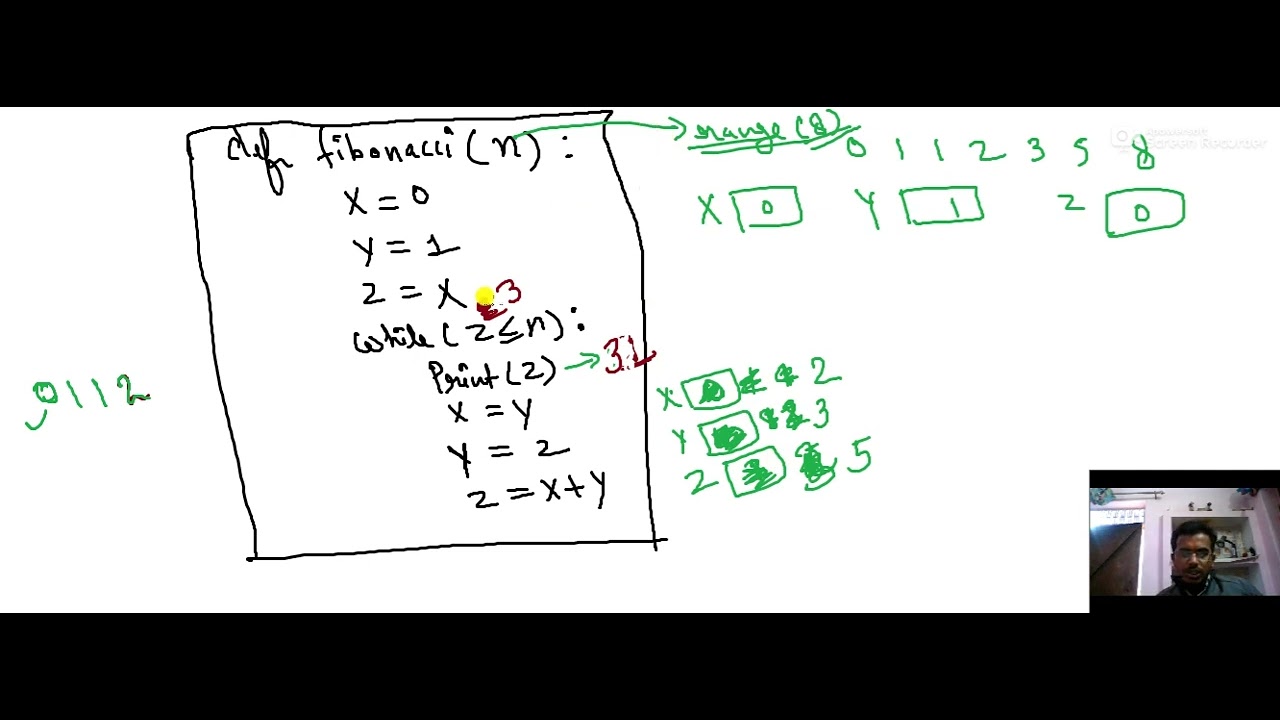 def fibonacci(n):
range(8)
0 1 1 2 3 5 8
Apowersoft
Screen Recorder
x = 0
x 0 y 1 z 0
y = 1
z = x 3
while(z≤n):
Print(z) → 3
x 2
0 1 1 2
x = y
y 3
y = z
z 5
z = x+y